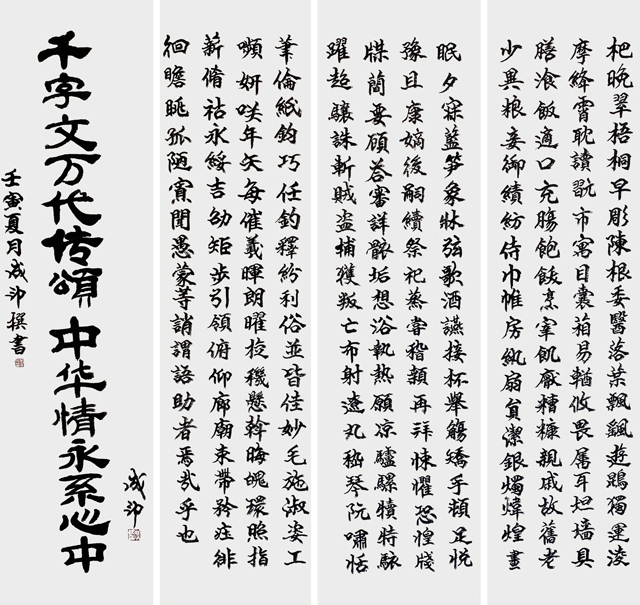 杷晚翠梧桐早彫陳根委翳落葉飄飖遊鵾獨運凌
摩絳霄耽讀翫市寓目囊箱易輶攸畏屬耳垣墻具
膳飡飯適口充腸飽飫烹宰飢厭糟糠親戚故舊老
少異粮妾御績紡侍巾帷房紈扇員潔銀燭煒煌晝
眠夕寐藍笋象牀弦歌酒讌接杯舉觴矯手頓足悅
豫且康嫡後嗣續祭祀蒸嘗稽顙再拜悚懼恐惶牋
牒簡要顧答審詳骸垢想浴執熱願凉驢騾犢特駭
躍超驤誅斬賊盜捕獲叛亡布射遼丸嵇琴阮嘯恬
筆倫紙鈞巧任釣釋紛利俗並皆佳妙毛施淑姿工
嚬妍咲年矢每催羲暉朗曜旋璣懸斡晦魄環照指
薪脩祜永綏吉劭矩步引領俯仰廊廟束帶矜庄徘
徊瞻眺孤陋寡聞愚蒙等誚謂語助者焉哉乎也
成印
千字文万代传頌中华情永系心中
壬寅夏月成印撰書